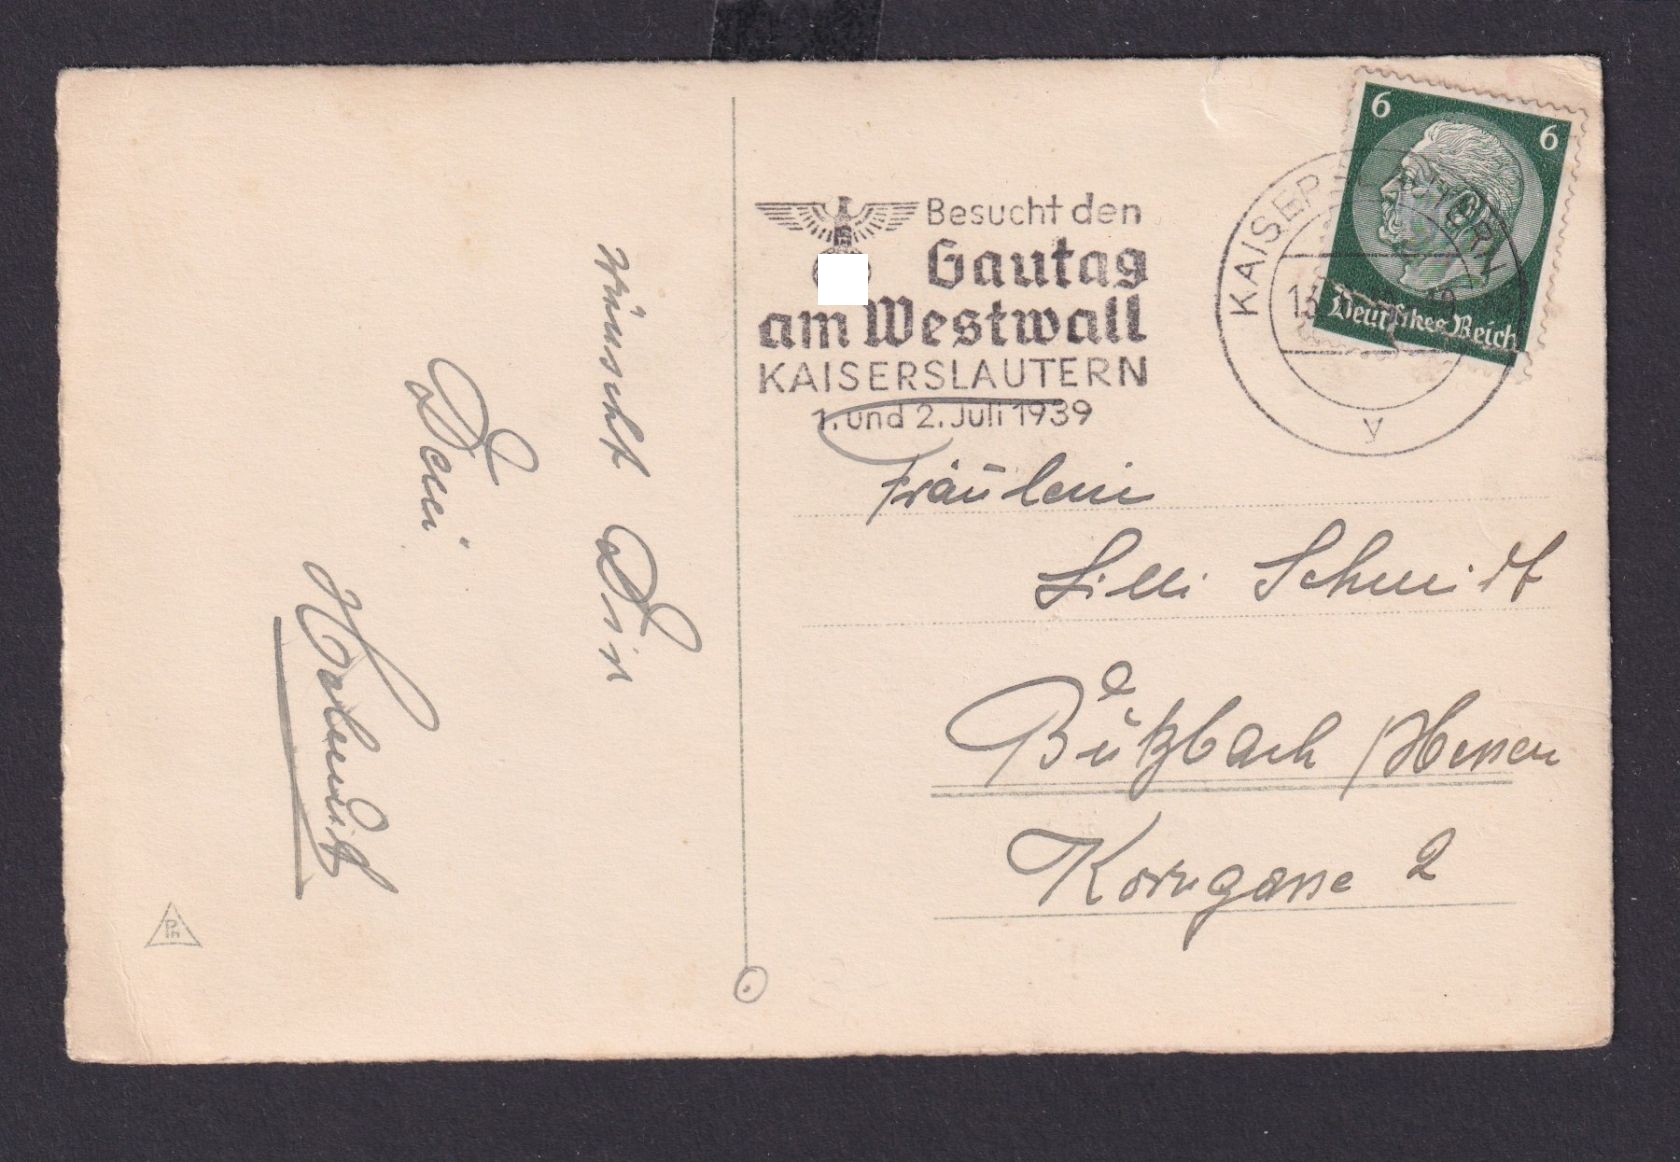 Besucht den
Gautag
am Westwall
KAISERSLAUTERN
1. und 2. Juli 1939
KAISERSLAUTERN
13
y
6
6
Deutsches Reich
Fräulein
Lilli Schmidt
Bützbach / Hessen
Korngasse 2
wünscht Dir
Dein